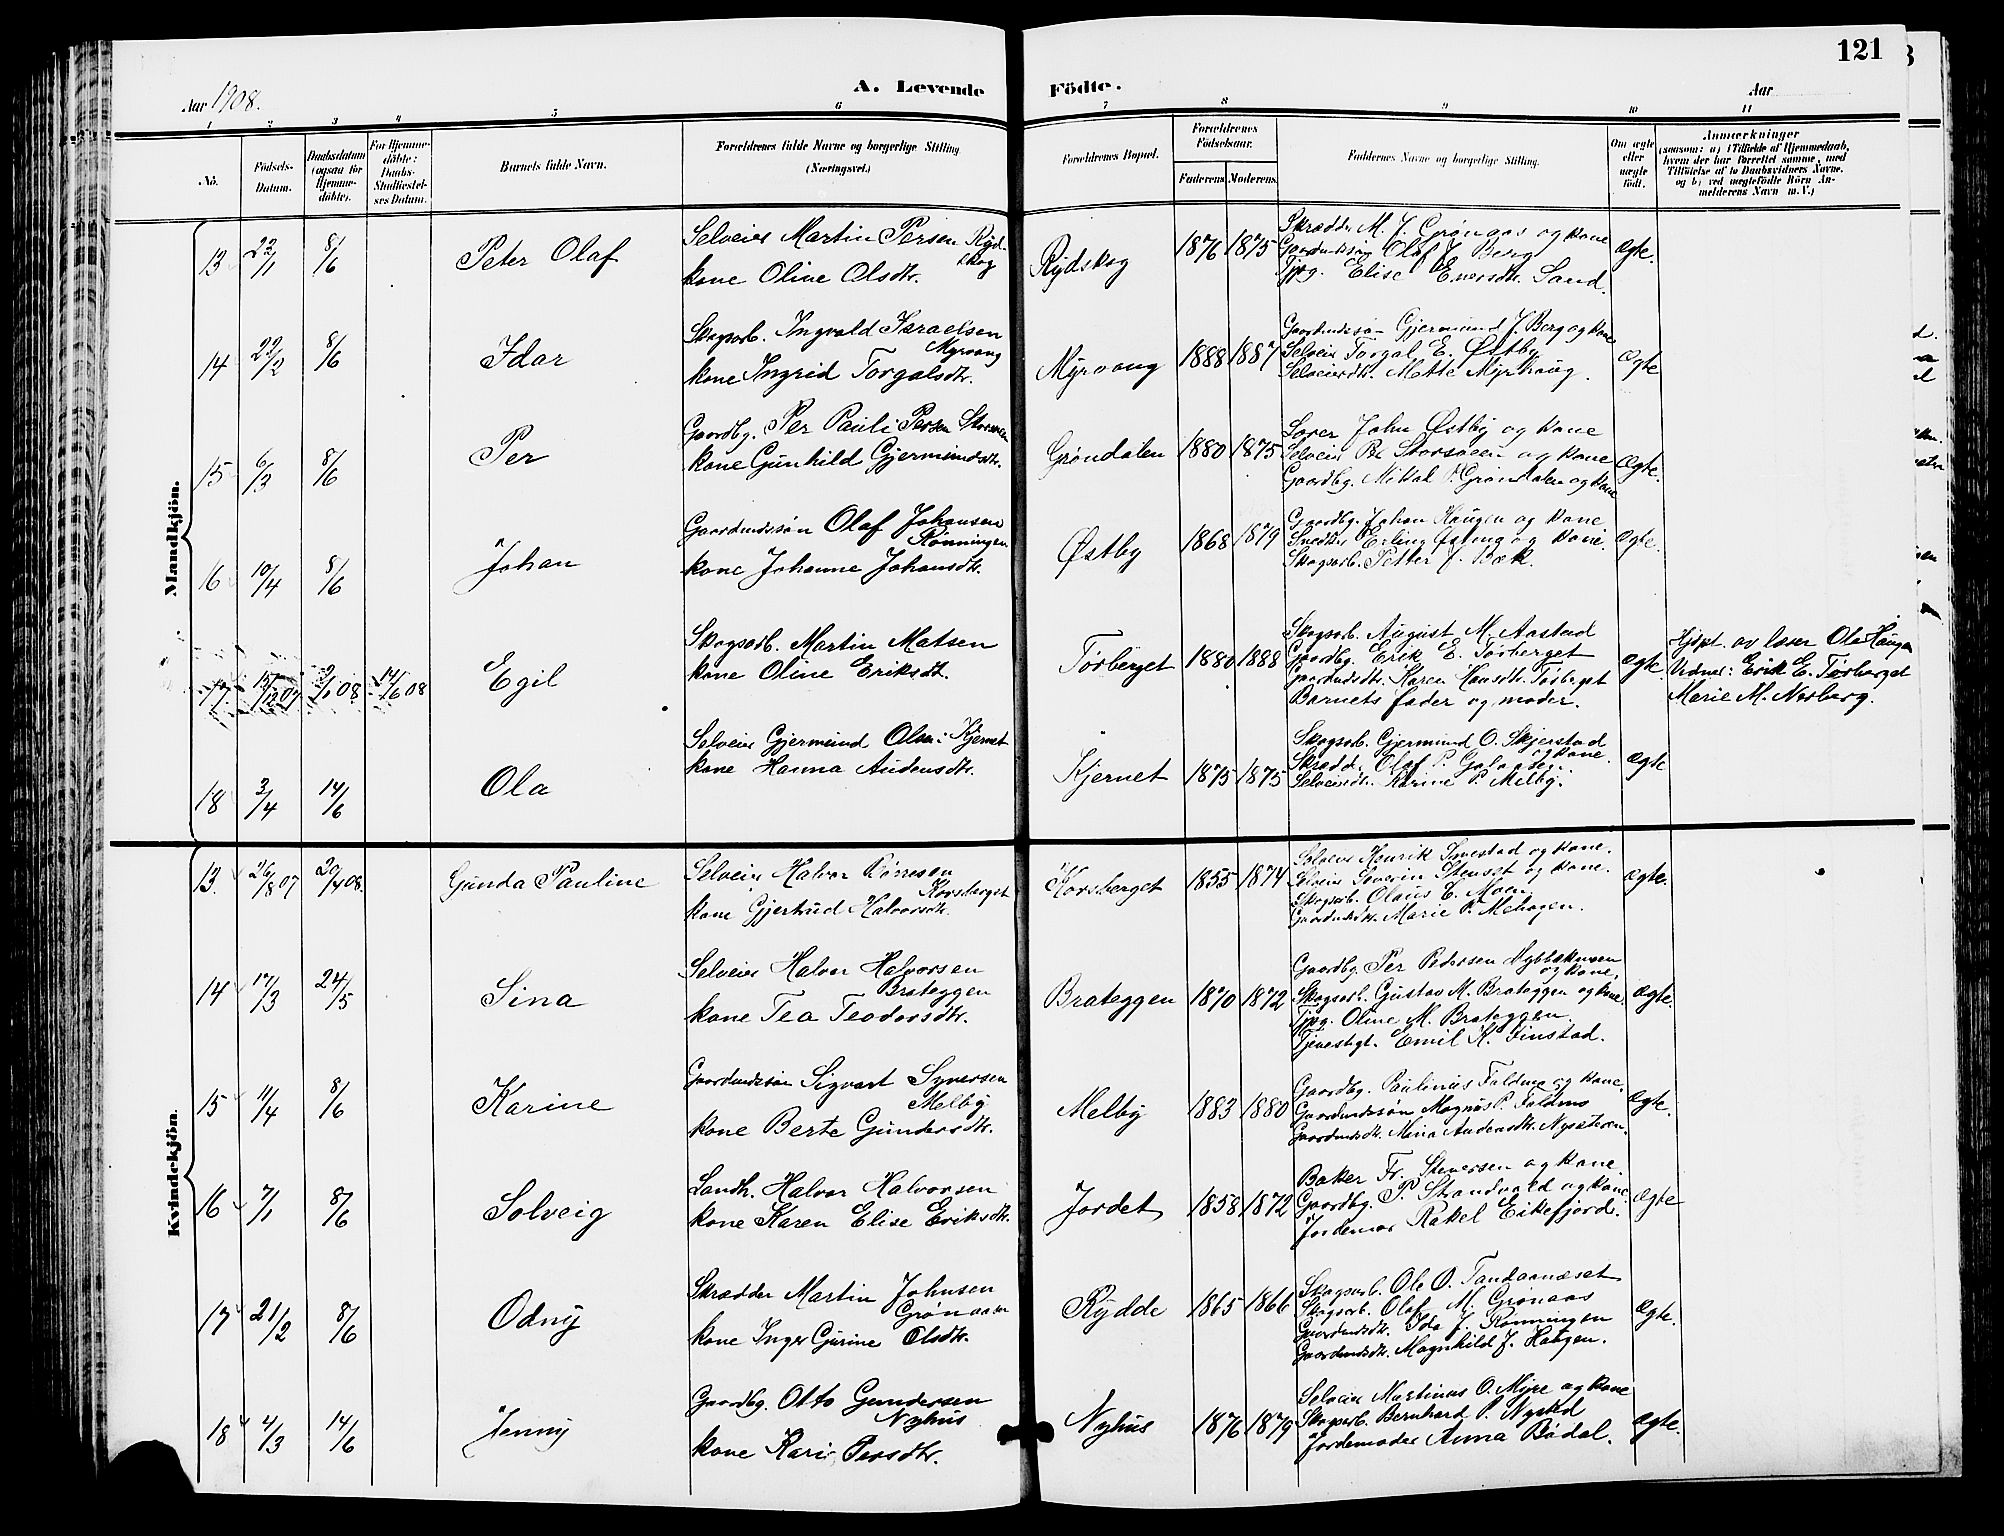 121
Aar 1908.
A. Levende Födte.
Aar
1 2 3 4 5 6 7 8 9 10 11
No.
Födsels-Datum.
Daabsdatum (ogsaa for Hjemme-döbte).
For Hjemme-döbte: Daabs-Stadfæstel-ses Datum.
Barnets fulde Navn.
Forældrenes fulde Navne og borgerlige Stilling (Næringsvei.)
Forældrenes Bopæl.
Forældrenes Födselsaar.
Faderens Moderens
Faddernes Navne og borgerlige Stilling.
Om ægte eller uægte födt.
Anmærkninger
(saasom: a) i Tilfælde af Hjemmedaab,
hvem der har forrettet samme, med
Tilföielse af to Daabsvidners Navne,
og b) ved uægtefödte Börn An-
melderens Navn m. V.)
Mandkjön.
13 22/1 8/6 Peter Olaf
Selveier Martin Persen Ryd-
skog
kone Oline Olsdtr.
Rydskog 1876 1875
Skrædder M. J. Grønaas og kone
Gaardmdssøn Olaf J. Berg
Tjpg. Elise Eversdtr. Sand.
ægte.
14 29/2 8/6 Idar
Skogsarb. Ingvald Israelsen
Myrvang
kone Ingrid Torgalsdtr.
Myrvang 1888 1887
Gaardmdssøn Gjermund J. Berg og kone
Selveier Torgal E. Østby
Selveierdtr. Mette Myrhaug.
ægte
15 6/3 8/6 Per
Gaardbg. Per Pauli Persen
kone Gunhild Gjermundsdtr.
Grøndalen 1880 1875
Lærer John Østby og kone
Selveier Per Storsveen og kone
Gaardbg. Mikal P. Grøndalen og kone
ægte.
16 10/4 8/6 Johan
Gaardmdssøn Olaf Johansen
Rønningen
kone Johanne Johansdtr.
Østby 1868 1879
Gaardbg. Johan Haugen og kone
Snedker Erling Østeng og kone.
Skogsarb. Petter J. Bæk.
ægte.
17. 15/12 07 2/1 08 14/6 08 Egil
Skogsarb. Martin Matsen
kone Oline Eriksdt.
Tørberget 1880 1888
Skogsarb. August M. Aastad
Gaardbg. Erik E. Tørberget
Gaardmdsdtr. Karen Hansdtr. Tørberget
Barnets fader og moder.
ægte.
Hjdpt. av lærer Ola Haugen
Vidner: Erik E. Tørberget
Marie M. Nesberg.
18 3/4 14/6 Ola
Selveier Gjermund Olsen Kjernet
kone Hanna Audensdtr.
Kjernet 1875 1875
Skogsarb. Gjermund O. Skjerstad
og kone.
Skrædd. Olaf P. Galaasen.
Selveierdtr. Karine P. Melby.
ægte
Kvindekjön.
13. 26/8 07 20/4 08. Gunda Pauline
Selveier Halvor
Korsberget
kone Gjertrud Halvorsdtr.
Korsberget 1855 1874
Selveier Henrik Sarestad og kone.
Selveier Severin Stenset og kone.
Skogsarb. Olaus E. Moen.
Gaardmdsdtr. Marie P. Mehagen.
ægte.
14 17/3 24/5 Sina
Selveier Halvor Halvorsen
Brateggen
kone Tea Teodorsdtr.
Brateggen 1870 1872
Gaardbg. Per Pedersen
og kone.
Skogsarb. Gustav M. Brateggen og kone.
Tjpg. Oline M. Brateggen.
Tjenestegt. Emil K. Finstad.
ægte.
15 11/4 8/6 Karine
Gaardmdssøn Sigvart Syversen
Melby
kone Berte Gundersdtr.
Melby 1883 1880
Gaardbg. Paulinus Faldmo og kone.
Gaardmdssøn Magnus P. Faldmo
Gaardmdsdtr. Mina Audensdtr. Nysæteren.
ægte.
16 7/1 8/6 Solveig
Landh. Halvor Halvorsen
kone Karen Elise Eriksdtr.
Jordet 1858 1872
Baker Fr. Steversen og kone.
Gaardbg. P. Strandvold og kone.
Jordemor Rakel Eikefjord.
ægte
17 21/2 8/6 Odny
Skrædder Martin Johnsen
Grønaasen
kone Inger Gurine Olsdtr.
Rydde 1865 1866
Skogsarb. Ole O. Tandaanæset
Skogsarb. Olaf M. Grønaas
Gaardmdsdtr. Ida J. Rønningen
Gaardmdsdtr. Magnhild J. Haugen.
ægte.
18 4/3 14/6 Jenny
Gaardbg. Otto Gundersen
Nyhus
kone Kari Persdtr.
Nyhus 1876 1879
Selveier Martinus O. Myre og kone
Skogsarb. Bernhard P. Nysted
Jordemoder Anna Bödal.
ægte.